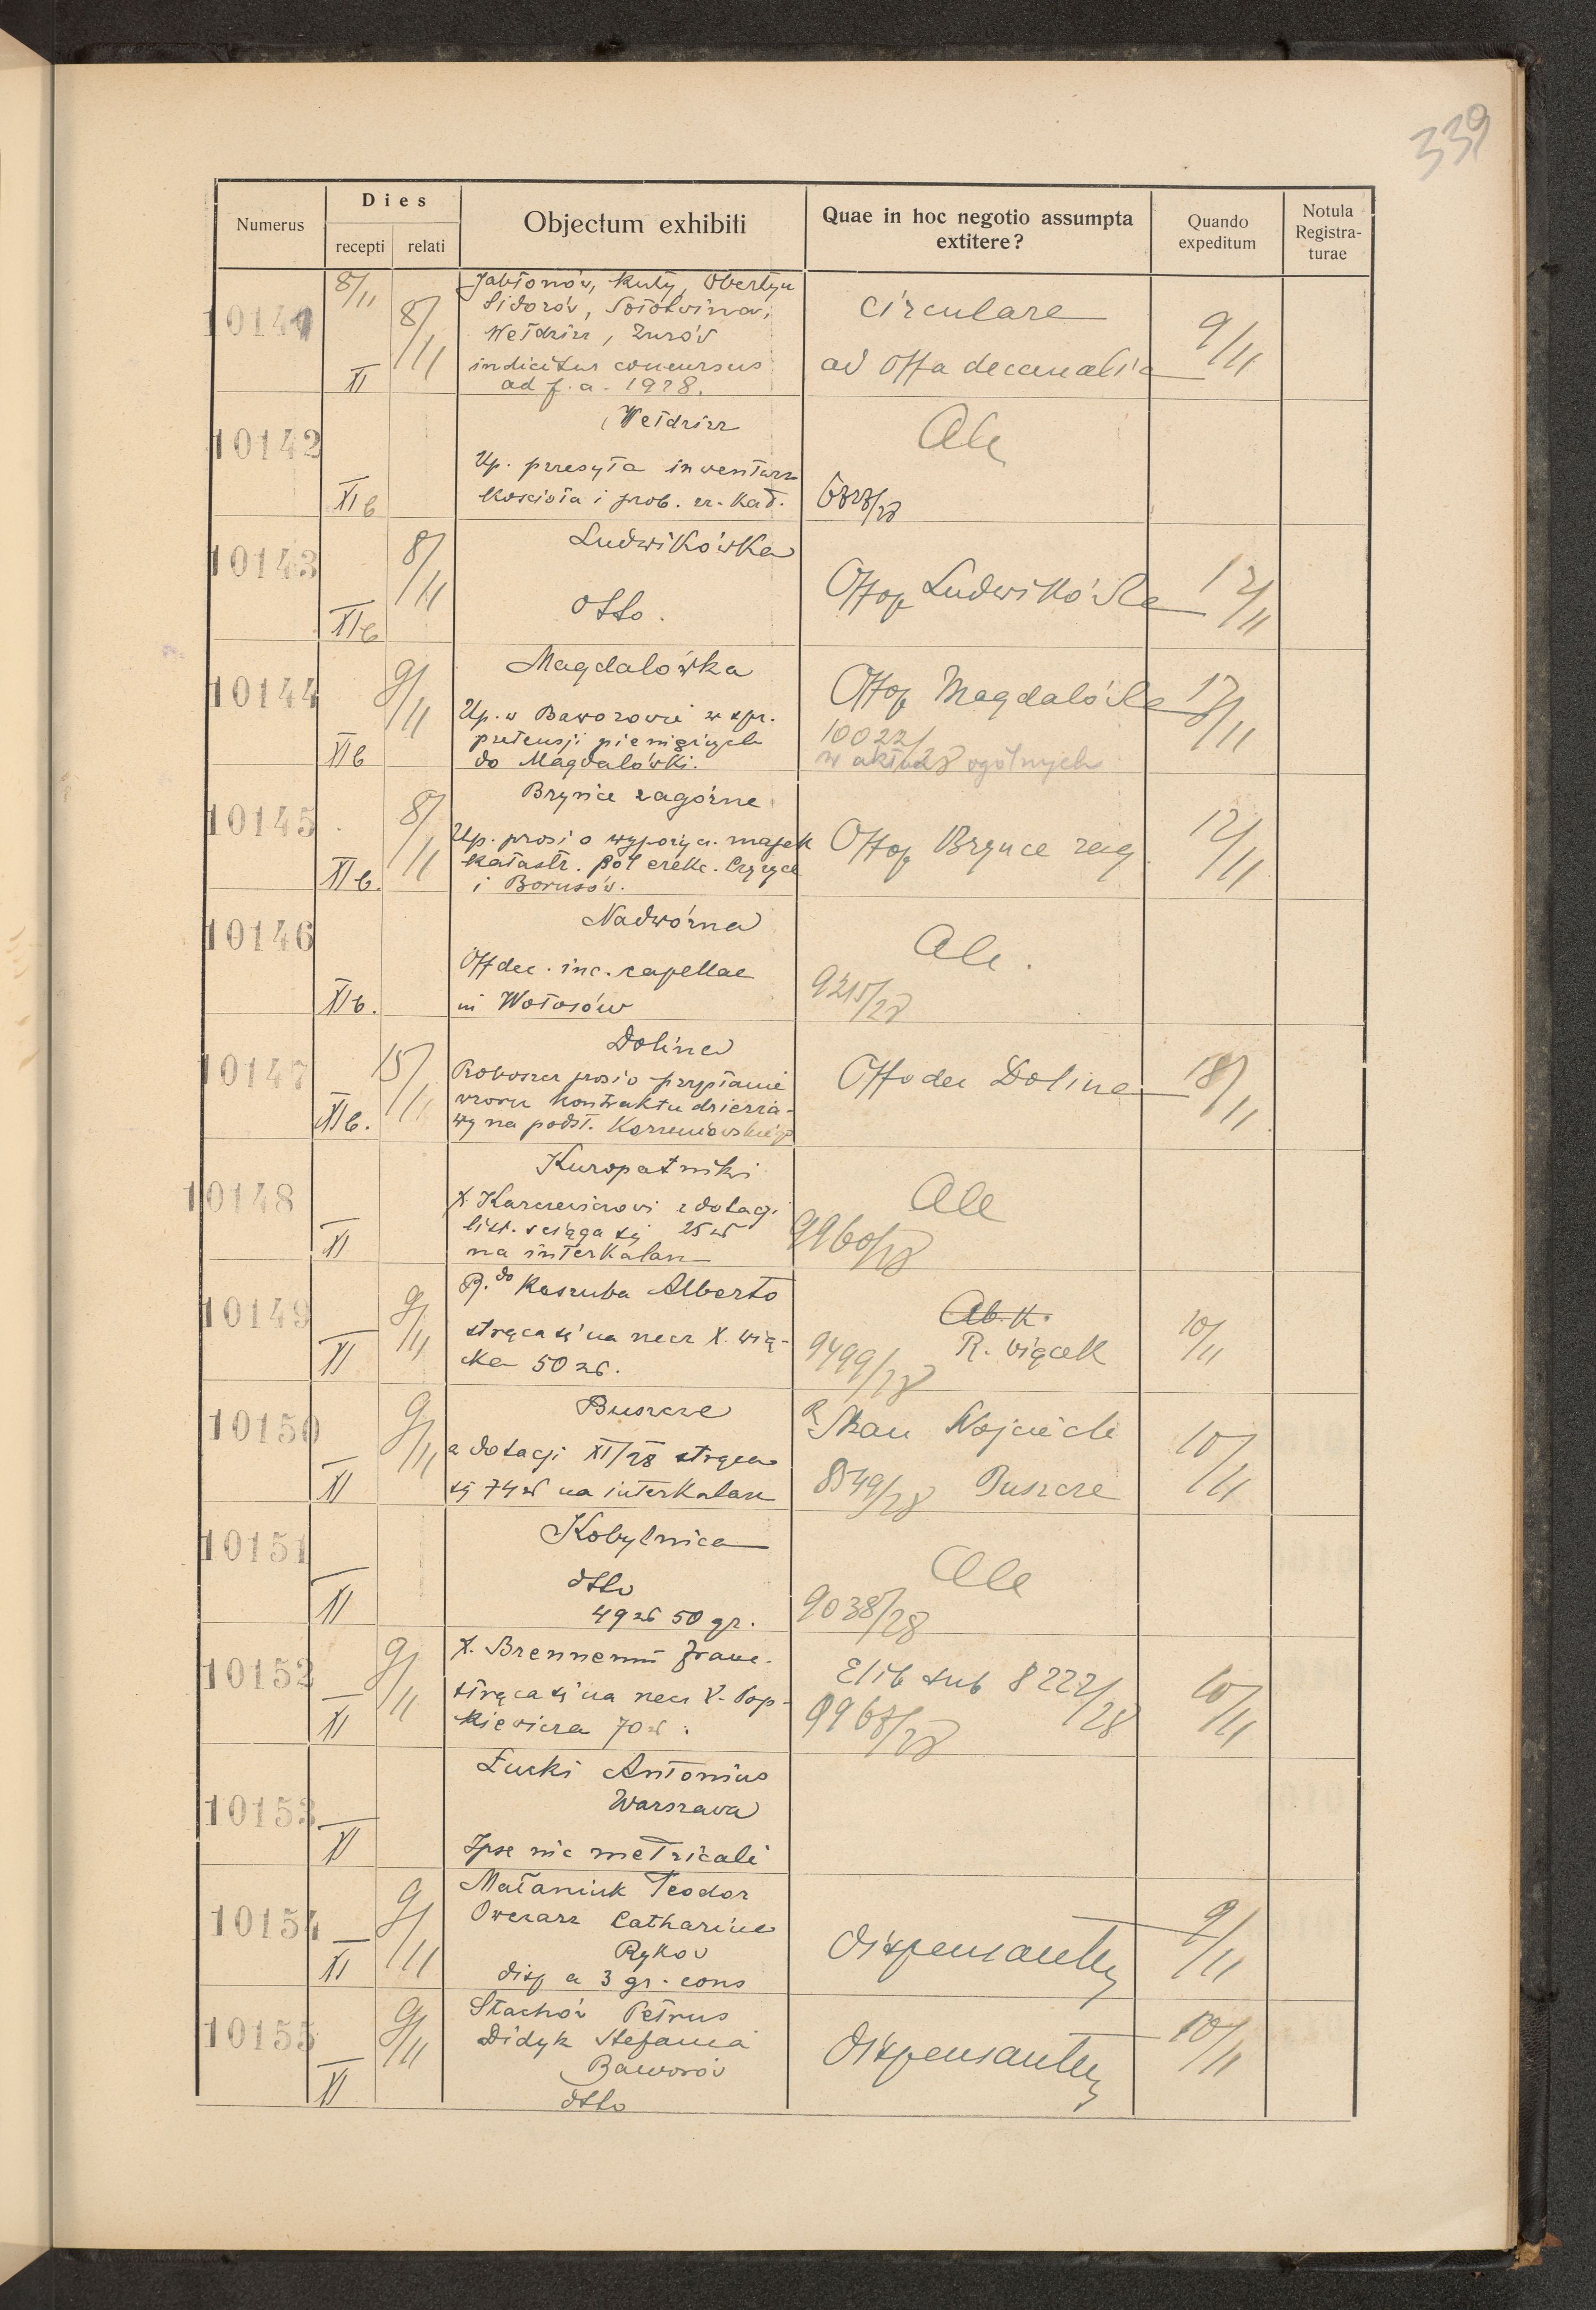 339
Numerus
Dies
recepti
relati
Objectum exhibiti
Quae in hoc negotio assumpta extitere?
Quando expeditum
Notula Registra-turae
10141
8/11
XI
8/11
Jabłonów, Kuty, Obertyn
Sidorów, Sołotwina,
Wełdzirz, Żurów
indicitur concursus
ad f. a. 1928.
circulare
ad Offa decanalia
9/11
10142
XI b
Wełdzirz
Up. przesyła inwentarz
kościoła i prob. rz. kat.
Ale
10143
XI b
8/11
Ludwikówka
Otto.
Offop Ludwikówka
12/11
10144
XI b
9/11
Magdalówka
Up. w Baworowie w spr.
pretensji pieniężnych
do Magdalówki.
Offop Magdalówka
10022/28
w aktach ogólnych
12/11
10145
XI b.
8/11
Brynce zagórne
Up. prosi o wypożycz. mapek
katastr. pól erekc. Czyżyce
i Borusów.
Offop Brynce zag
12/11
10146
XI b.
Nadwórna
Offdec. inc. capellae
in Wołosów
Ale.
9215/28
10147
XI b.
15/11
Dolina
Proboszcz prosi o przysłanie
wzoru kontraktu dzierża-
wy na podst.
Offodec Dolina
18/11
10148
XI
Kuropatniki
X. Karczewiczowi z dotacji
list. ściąga się 25 zł
na interkalar
Ale
9960/28
10149
XI
9/11
R.do Kaszuba Alberto
strąca się na rzecz X. Wią-
cka 50 zł.
Ab. K.
R. Wiącek
9499/28
10/11
10150
XI
9/11
Buszcze
z dotacji XI/28 strąca
się 74 zł na interkalar
R. Skau Wojciech
8549/28 Buszcze
10/11
10151
XI
Kobylnica
dtto
49 zł 50 gr.
Ale
9038/28
10152
XI
9/11
X. Brennenn Franc.
strąca się na rzecz X. Pop-
kiewicza 70 zł.
Elib sub 8222/28
9968/28
10/11
10153
XI
Łucki Antonius
Warszawa
Ipse nic metricali
10154
XI
9/11
Małaniuk Teodor
Owczarz Catharina
Ryków
disp a 3 gr. cons
dispensantur
9/11
10155
XI
9/11
Stachów Petrus
Didyk Stefania
Baworów
dtto
dispensantur
10/11